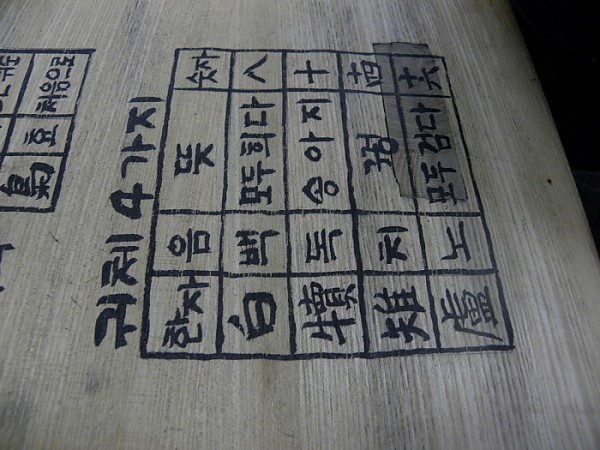 귀체 4가지
한자 음 뜻 숫자
白 백 모두희다 八
犢 독 송아지 十
雉 치 꿩 十四
盧 노 모두검다 十六